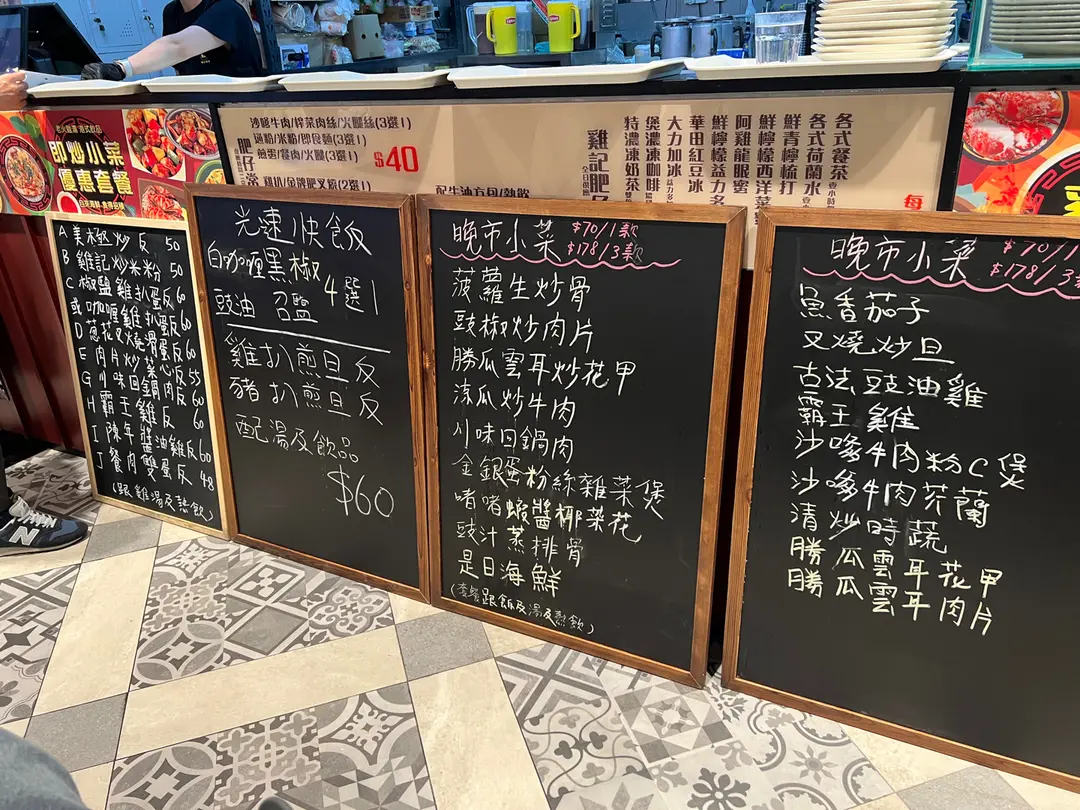 即炒小菜
優惠套餐
沙嗲牛肉/榨菜肉絲/火腿絲(3選1)
通粉/米粉/即食麵(3選1)
煎蛋/餐肉/火腿(3選1)
$40
肥仔
雞記肥
特濃凍奶茶
煲濃凍咖啡
大力加冰
華田紅豆冰
鮮檸檬益力多
阿華龍眼蜜
鮮檸檬西洋菜
鮮青檸梳打
各式荷蘭水
各式餐茶
每
A 美極炒反 50
B 雞記炒米粉 50
C 椒鹽雞扒蛋反 60
或 咖喱雞扒蛋反 60
D 蔥花叉燒滑蛋反 60
E 肉片炒菜心反 55
G 川味回鍋肉反 60
H 霸王雞反 60
I 陳年醬油雞反 60
J 餐肉雙蛋反 48
(跟雞湯及熱飲)
光速快飯
白咖喱黑椒
豉油 召盬 4選1
雞扒煎旦反
豬扒煎旦反
配湯及飲品
$60
晚市小菜 $70/1款
$178/3款
菠蘿生炒骨
豉椒炒肉片
勝瓜雲耳炒花甲
涼瓜炒牛肉
川味回鍋肉
金銀蛋粉絲雜菜煲
啫啫蝦醬椰菜花
豉汁蒸排骨
是日海鮮
(套餐跟飯及湯及熱飲)
晚市小菜 $70/1
$178/3款
魚香茄子
叉燒炒旦
古法豉油雞
霸王雞
沙嗲牛肉粉C煲
沙嗲牛肉芥蘭
清炒時蔬
勝瓜雲耳花甲
勝瓜雲耳肉片